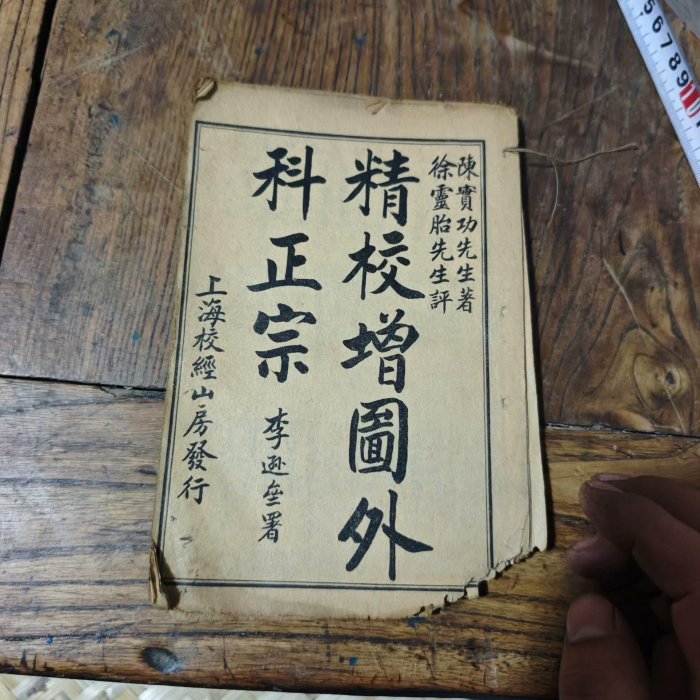 陳實功先生著
徐靈胎先生評
精校增圖外
科正宗
李遜無署
上海校經山房發行
5 6 7 8 9